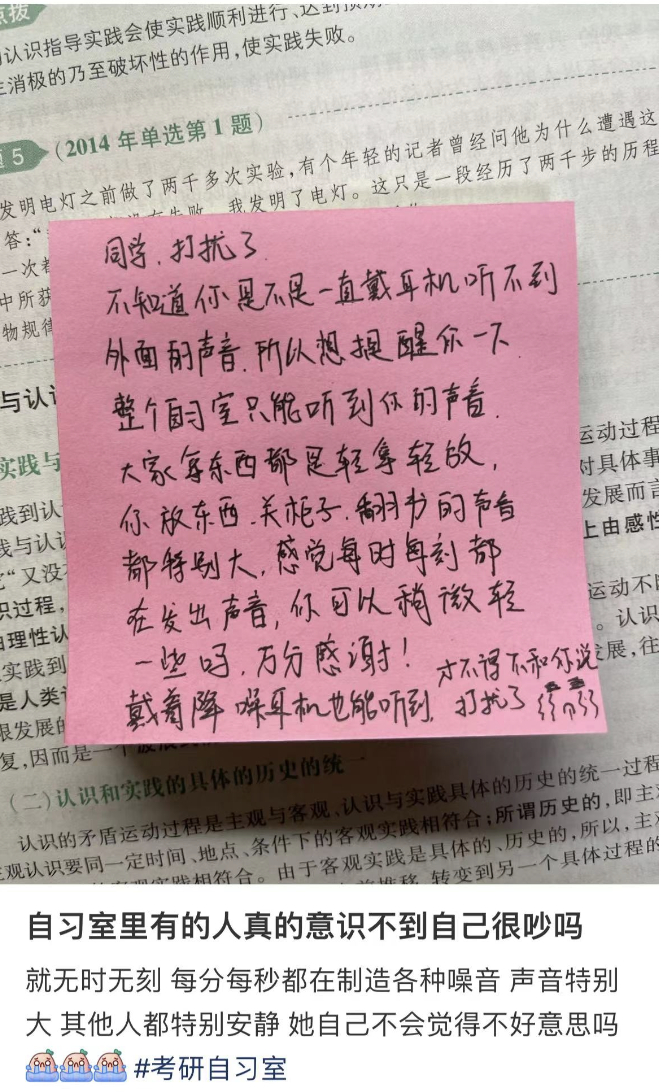 点拨
的认识指导实践会使实践顺利进行、达到预期
生消极的乃至破坏性的作用,使实践失败。
题5 (2014年单选第1题)
发明电灯之前做了两千多次实验,有个年轻的记者曾经问他为什么遭遇这
答:“ 我发明了电灯。这只是一段经历了两千步的历程
一次都
中所获
物规律
与认识
实践与
践到认
践与认识
“又没
识过程,
由理性认
实践到
是人类
限发展的
复,因而是一个
同学,打扰了
不知道你是不是一直戴耳机听不到
外面的声音,所以想提醒你一下
整个自习室只能听到你的声音.
大家拿东西都是轻拿轻放,
你放东西.关柜子.翻书的声音
都特别大,感觉每时每刻都
在发出声音,你可以稍微轻
一些吗,万分感谢!
戴着降噪耳机也能听到,才不得不和你说
打扰了
运动过程
对具体事
发展而言
上由感性
运动不断
。认识
发展,往
(二)认识和实践的具体的历史的统一
认识的矛盾运动过程是主观与客观、认识与实践具体的历史的统一过程
主观认识要同一定时间、地点、条件下的客观实践相符合;所谓历史的,即主
观实践相符合。由于客观实践是具体的、历史的,所以,主
推移、转变到另一个具体过程的
自习室里有的人真的意识不到自己很吵吗
就无时无刻 每分每秒都在制造各种噪音 声音特别
大 其他人都特别安静 她自己不会觉得不好意思吗
#考研自习室